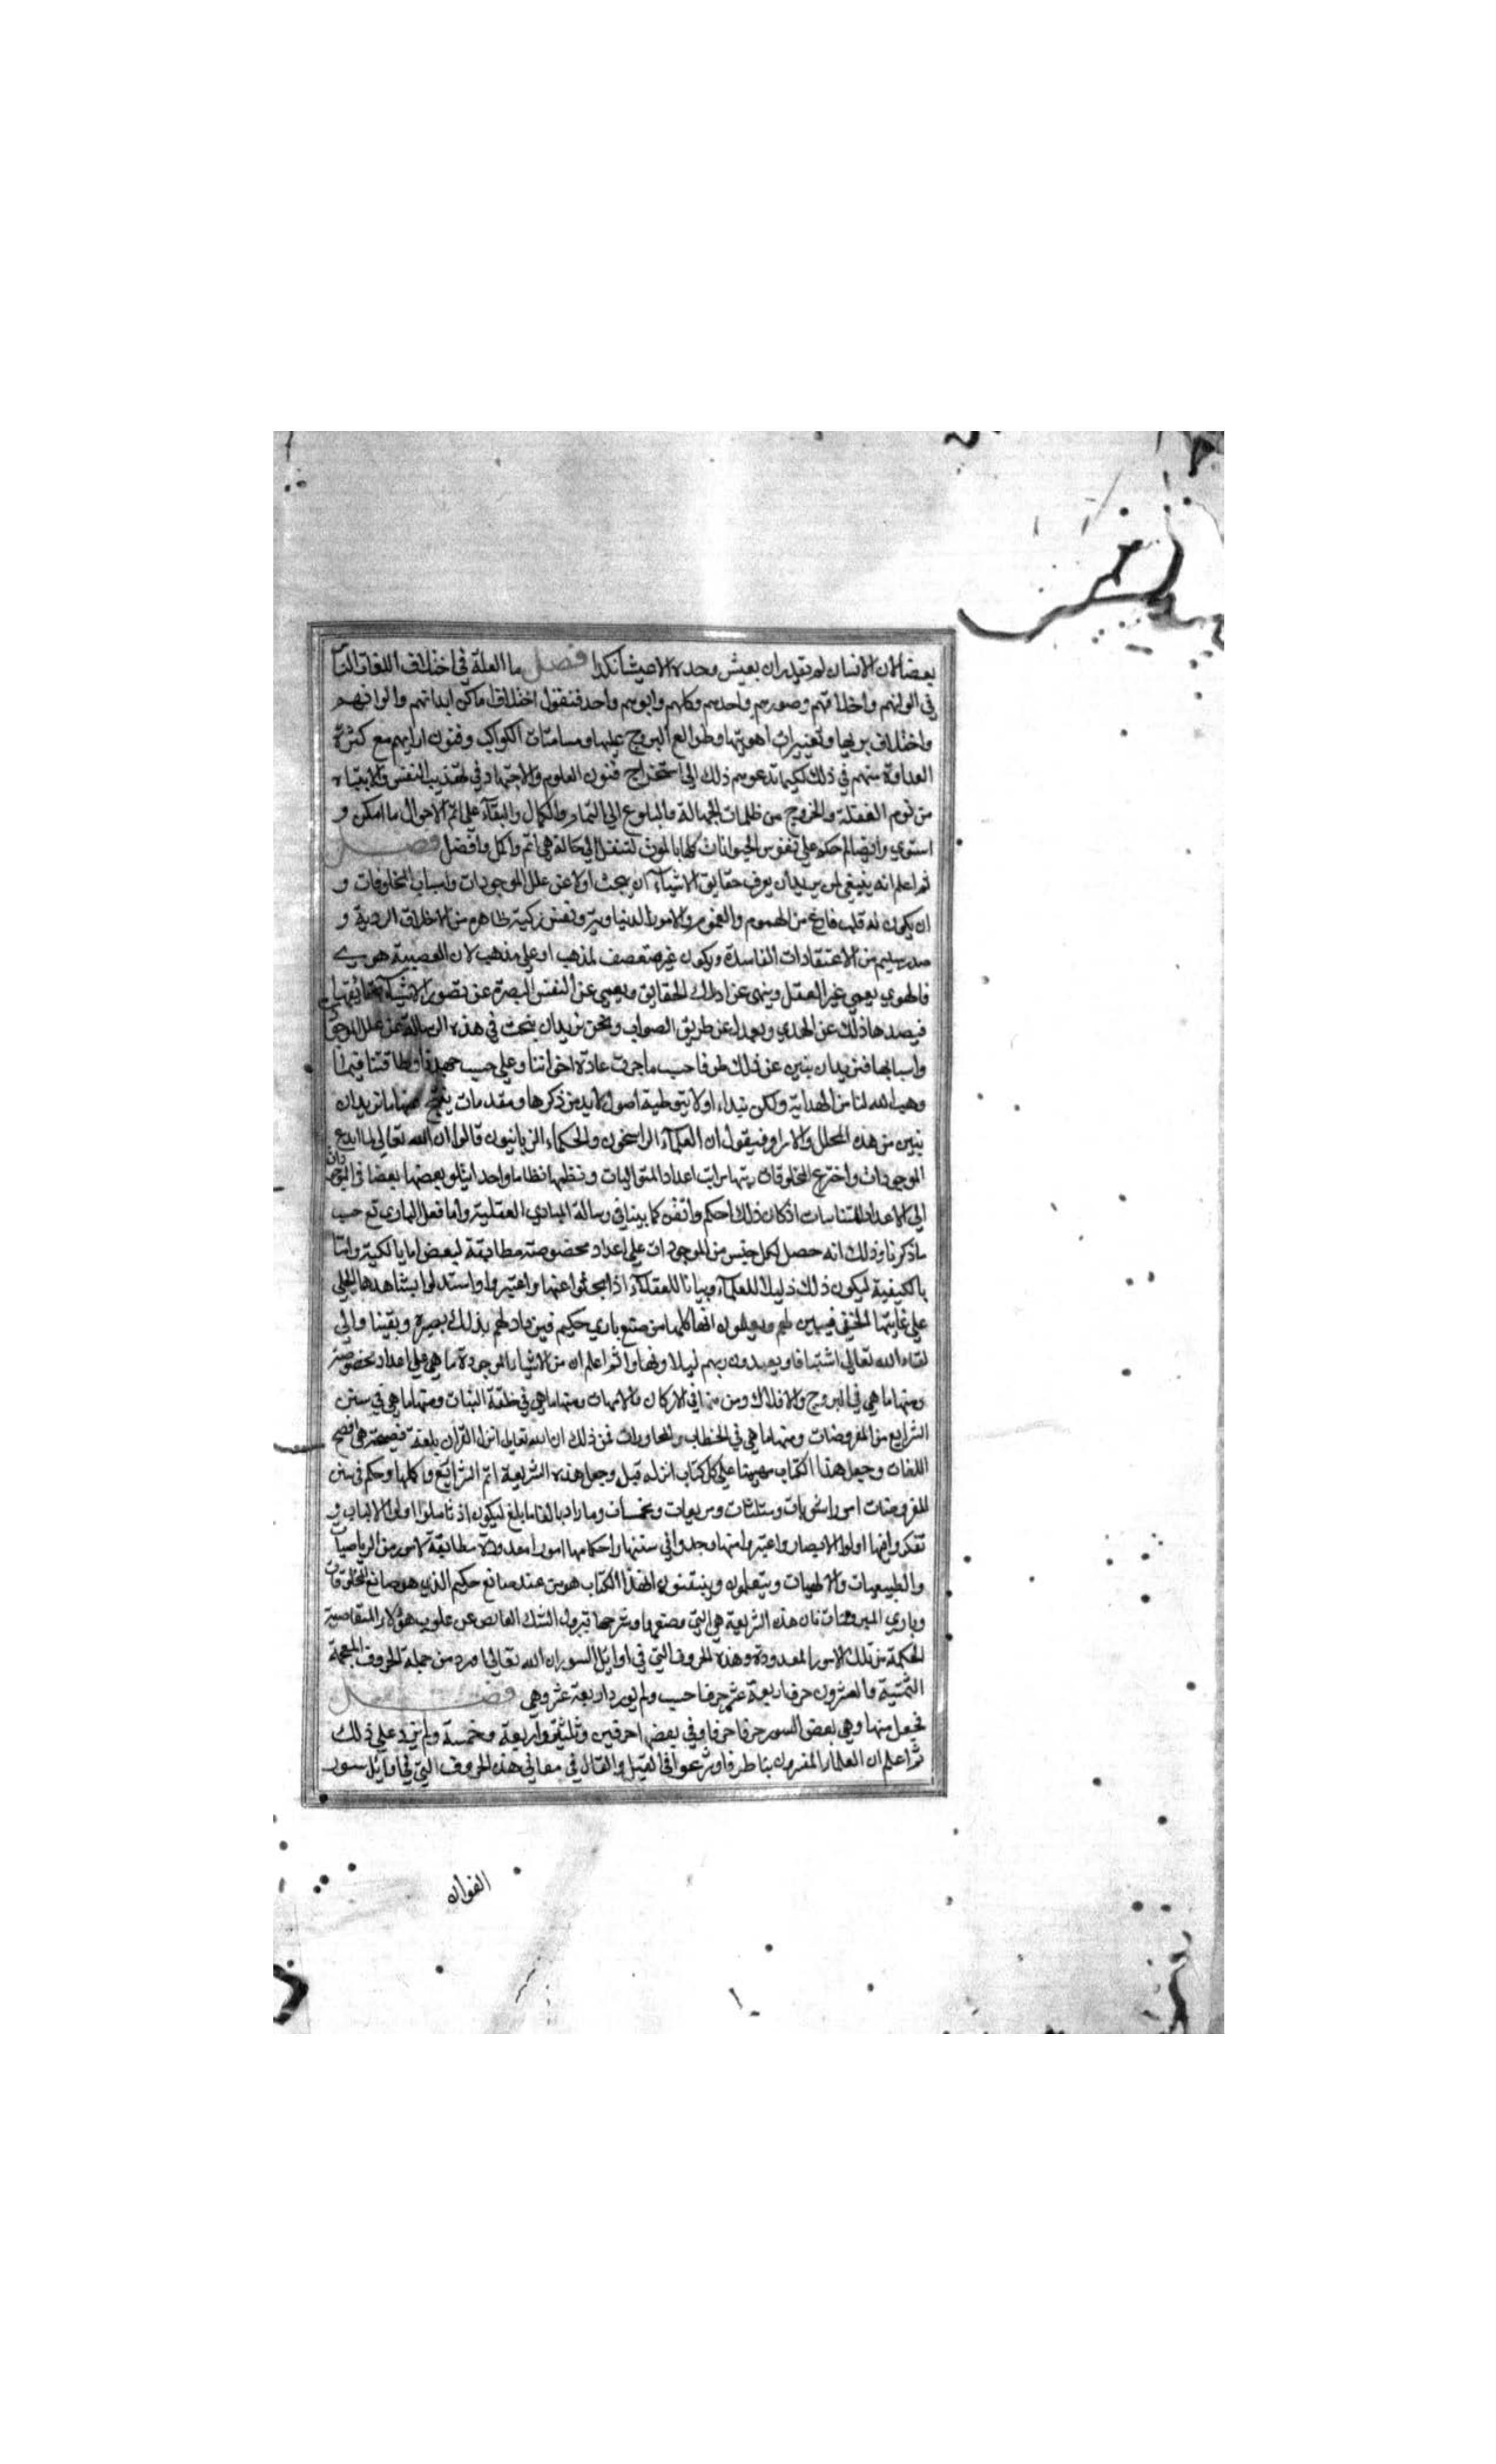 بعضا لان الانسان لم يقدر ان يعيش وحده الا عيشا نكدا فصل ما العلة في اختلاف اللغات الناس
في الوانهم واخلاقهم وصورهم واحدهم وكلهم وابوهم واحد فنقول اختلاف اماكن ابدانهم والوانهم
واختلاف تربها وتغييرات اهويتها وطوالع البروج عليها ومسامتات الكواكب وفنون ارايهم مع كثرة
العداوة بينهم في ذلك لكيما تدعوهم ذلك الى استخراج فنون العلوم والاجتهاد في تهذيب النفس والانتباه
من نوم الغفلة والخروج من ظلمات الجهالة والبلوغ الي التمام والكمال والبقاء علي اتم الاحوال ما امكن و
استوي وايضا لم حكم علي نفوس الحيوانات كلها بالموت لتنتقل الي حالة هي اتم واكمل وافضل فصل
ثم اعلم انه ينبغي لمن يريد ان يعرف حقايق الاشياء ان يبحث اولا عن علل الموجودات واسباب المخلوقات و
ان يكون له قلب فارغ من الهموم والغموم والامور الدنياوية ونفس زكية طاهره من الاخلاق الردية و
صدر سليم من الاعتقادات الفاسدة ويكون غير متعصف لمذهب او علي مذهب لان العصبية هوي
فالهوي يعمي عين العقل وينهي عن ادراك الحقايق ويعمي عن النفس البصرة عن تصور الاشياء بحقائقها
فيصدها ذلك عن الهدي ويعدل عن طريق الصواب ونحن نريد ان نبحث في هذه الرسالة عن علل الموجودات
واسبابها فنريد ان نبين عن ذلك طرفا حسب ما جرت عادة اخواننا وعلي حسب جهدنا وطاقتنا فيما
وهب الله لنا من الهداية ولكن نبداء اولا بتوطية اصول لابد من ذكرها ومقدمات ينتج عنها ما نريد ان
نبين من هذه العلل والاسرار فنقول ان العلماء الراسخون والحكماء الربانيون قالوا ان الله تعالي لما ابدع
الموجودات واخترع المخلوقات رتبها مراتب اعداد المتواليات ونظمها نظاما واحدا يتلو بعضها بعضا في الوجود
الي الاعداد المتناسبات اذ كان ذلك احكم واتقن كما بينا في رسالة المبادي العقلية واما فعل الباري تع حسب
ما ذكرنا وذلك انه حصل لكل جنس من الموجودات علي اعداد مخصوصة مطابقة لبعض اما بالكمية واما
بالكيفية ليكون ذلك دليلا للعلماء وبيانا للعقلاء اذا بحثوا عنها واعتبروا واستدلوا بشاهدها الجلي
علي غايتها الخفي فيبين لهم ويعلمون انها كلها من صنع باري حكيم فيزداد لهم بذلك بصيرة ويقينا والي
لقاء الله تعالي اشتياقا ويعبدون ربهم ليلا ونهارا ثم اعلم ان من الاشياء الموجودة ما هي علي اعداد مخصوصة
ومنها ما هي في البروج والافلاك ومن منها في الاركان والامهات ومنها ما هي في خلقة النبات ومنها ما هي في سنن
الشرايع من المفروضات ومنها ما هي في الخطاب والمحاورات فمن ذلك ان الله تعالي انزل القران بلغة فصيحة هي افصح
اللغات وجعل هذا الكتاب مهيمنا علي كل كتاب انزله قبل وجعل هذه الشريعة اتم الشرائع واكملها وحكم في سنن
المفروضات امورا مثنويات ومثلثات ومربعات ومخمسات وما زاد بالغا ما بلغ ليكون اذ تاملوا اولوا الالباب و
تفكروا فيها اولوا الابصار واعتبروا منها وجدوا في سننها واحكامها امورا معدودة مطابقة لامور من الرياضيات
والطبيعيات والالهيات ويتعلمون ويتيقنون ان هذا الكتاب هو من عند صانع حكيم الذي هو صانع المخلوقات
وباري المبروءات فان هذه الشريعة هي التي وضعها وشرحها تبرول الشك العارض عن قلوب هؤلاء
الحكمة من تلك الامور المعدودة وهذه الحروف التي في اوائل السور ان الله تعالي اورد من جملة الحروف المعجمة
الثمنية والعشرون حرفا اربعة عشر حرفا حسب ولم يورد اربعة عشر وهي فصل
فجعل منها وهي بعض السور حرفا حرفا وفي بعض حرفين وثلثة واربعة وخمسة ولم يزد علي ذلك
ثم اعلم ان العلماء المفسرون بتا طرفا وشرعوا في القيل والقال في معاني هذه الحروف التي في اوائل سور
القران